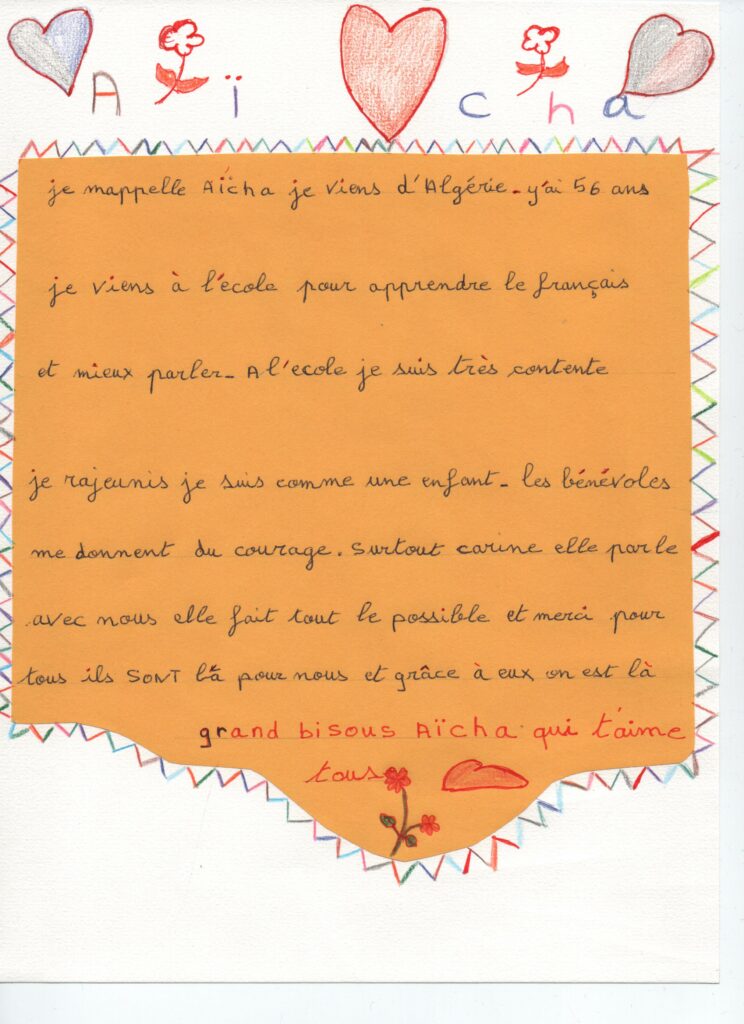 Aïcha
je mappelle Aïcha je viens d'Algérie - y'ai 56 ans
je viens à l'école pour apprendre le français
et mieux parler - A l'ecole je suis très contente
je rajeunis je suis comme une enfant - les bénévoles
me donnent du courage. Surtout carine elle parle
avec nous elle fait tout le possible et merci pour
tous ils SONT là pour nous et grâce à eux on est là
grand bisous Aïcha qui t'aime
tous